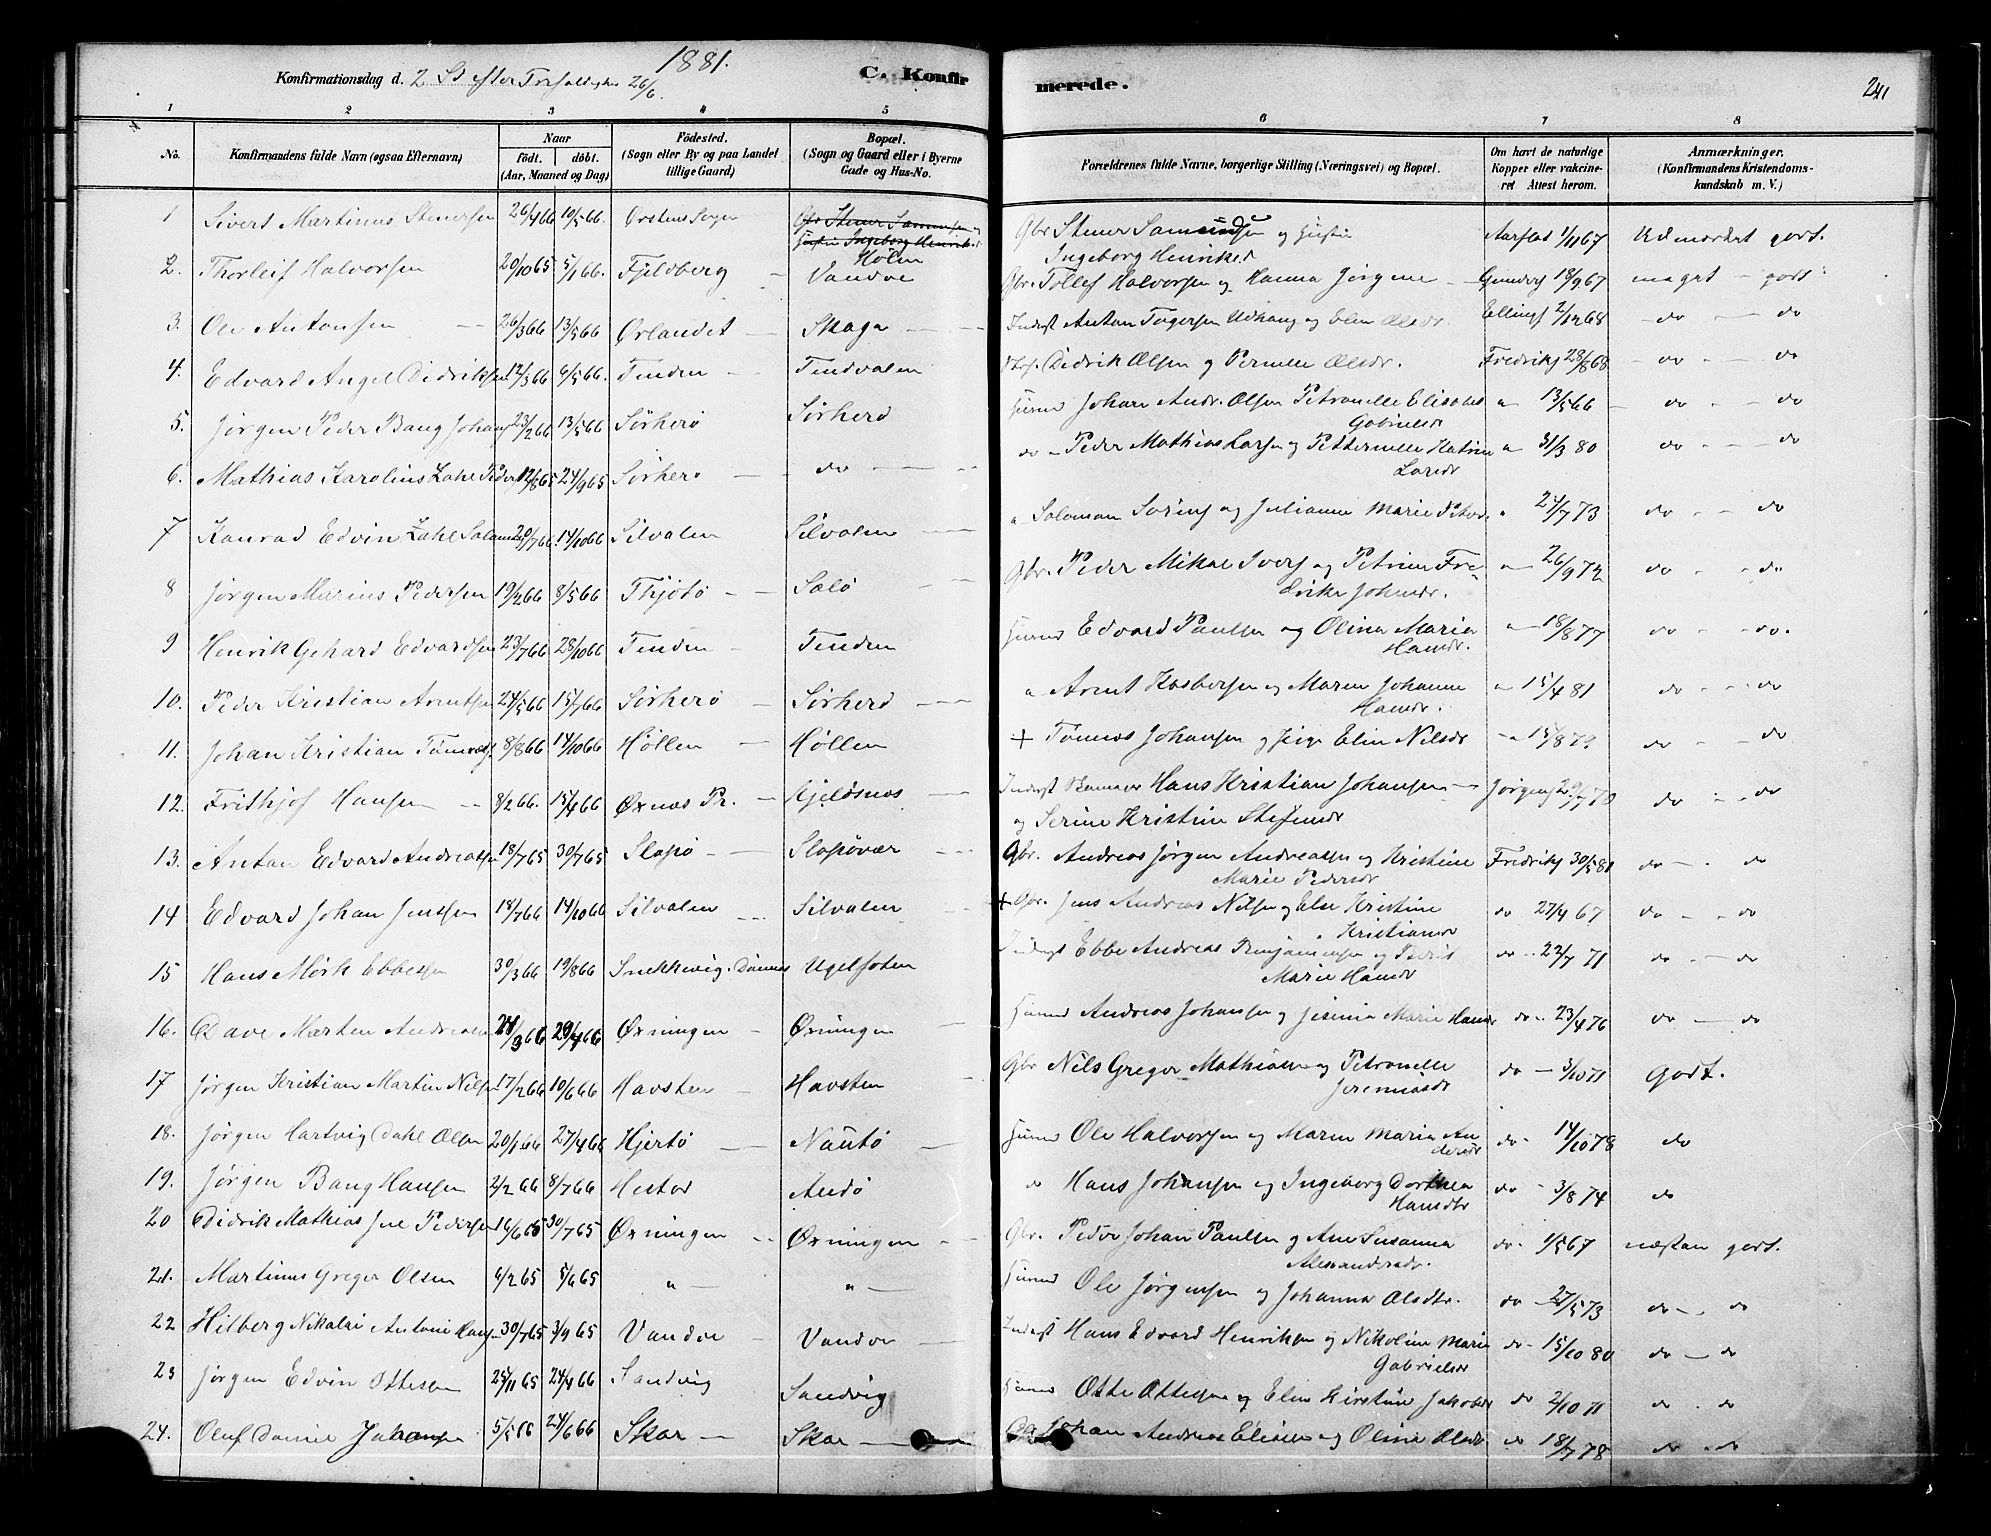 1881.
Konfirmationsdag d. 2 Sd efter Trefoldighed 26/6.
C. Konfirmerede.
241
1 2 3 4 5 6 7 8
No. Konfirmandens fulde Navn (ogsaa Efternavn) Naar født. døbt. (Aar, Maaned og Dag) Fødested. (Sogn eller By og paa Landet tillige Gaard) Bopæl. (Sogn og Gaard eller i Byerne Gade og Hus-No. Forældrenes fulde Navne, borgerlige Stilling (Næringsvei) og Bopæl. Om havt de naturlige Kopper eller vakcineret Attest herom. Anmærkninger. (Konfirmandens Kristendomskundskab m. V.)
1 Sivert Martinus Stenersen 26/4 66 10/5 66. Ørstens Sogn Holm Gbr Stener Samundsen og Hustru Ingeborg Henriksd Aarstad 1/11 67 Udmærket godt.
2. Thorleif Halvorsen 20/10 65 5/1 66. Fjeldberg Vandve Gbr. Tollef Halvorsen og Hanna Jørgine 18/9 67 meget godt
3. Ole Antonsen 26/3 66 13/5 66 Ørlandet Skaga Inderst Anton og Elen Olsdr. Ellings 2/12 68 do do
4. Edvard Angel Didriksen 12/3 66 6/5 66. Tenden Tendvalen Didrik Olsen og Pernille Olsdr. Fredriks 28/8 68 do do
5. Jørgen Peder Bang Johans 23/2 66 13/5 66 Sørherø Sørherø Johan Andr. Olsen Petronelle Elisabet Gabrielsdr " 13/5 66 do do
6. Mathias Karolius Zahl Peders 12/8 65 24/9 65 Sørherø do do Peder Mathias Larsen og Petternelle Katrine Larsdr " 31/3 80 do do
7 Konrad Edvin Zahl Salomons 20/7 66. 14/10 66 Silvalen Silvalen " Salomon Sørens og Julianne Marie Peds. " 24/7 73 do do
8 Jørgen Marius Pedersen 19/2 66 8/5 66 Thjøtø Salø Gbr. Peder Mikal Ivers og Petrine Fredrikke Johnsdr. " 26/9 72 do do
9 Henrik Gehard Edvardsen 23/7 66 28/10 66 Tenden Tenden Edvard Paulsen og Olina Maria Hansdr. " 18/8 77 do do.
10. Peder Kristian Arentsen 24/5 66 15/7 66 Sørherø Sørherø " Arent Kasbersen og Maren Johanne Hansdr. " 15/4 81 do do
11. Johan Kristian Tønnes 8/8 66 14/10 66 Høllen Høllen + Tønnes Johansen og Elen Nilsdr 15/8 79 do do
12. Frithjof Hansen 8/2 66. 15/4 66 Øxnæs Pr. Gjeldsnes Inderst Hans Kristian Johansen og Serine Kristine Stefensdr Jørgens 29/7 70 do do
13. Anton Edvard Andreassen 18/7 65 30/7 65 Slapø Slapøvær Gbr. Andreas Jørgen Andreassen og Kristine Marie Pedersdr Fredriks 30/5 81 do do
14 Edvard Johan Jenssen 18/7 66 14/10 66 Silvalen Silvalen + Gbr. Jens Andreas Nilsen og Else Kristine Kristiansdr do 27/4 67 do do
15 Hans Mørk Ebbesen 30/3 66 19/8 66 Snekkevig. Dønnes Ugelsoten Inderst Ebbe Andreas Benjaminsen og Marie Hansdr do 22/7 71 do do
16. Dave Marten Andreasen 24/3 66 29/4 66 Øxningen Øxningen Andreas Johansen og Marie Hansdr do 23/4 76 do do
17 Jørgen Kristian Martin Nilsen 17/2 66 10/6 66 Havsten Havsten Gbr Nils Greger Mathiasen og Petronelle Jeremiasdr do 3/10 71 Godt.
18. Jørgen Hartvig Dahl Olsen 20/1 66 27/4 66 Hjertø Nautø Ole Halvorsen og Maren Maria Andersdr do 14/10 78 do
19. Jørgen Bang Hansen 2/2 66 8/7 66 Hestad Andø do Hans Johansen og Ingeborg Dorthea Hansdtr do 3/8 74 do
20 Didrik Mathias Pedersen 16/6 65 30/7 65 Øxningen Øxningen Gbr. Peder Johan Paulsen og Ane Susanna Alexandersdr. do 1/5 67 næstan godt.
21. Martinus Greger Olsen 6/2 65 5/6 65 " " Ole Jørgensen og Johanna Olsdtr. do 27/5 73 do do
22 Hilberg Nikolai Antoni Hans 30/7 65 3/9 65 Vandve Vandve Inderst Hans Edvard Henriksen og Nikoline Maria Gabrielsdr do 15/10 80 do do
23 Jørgen Edvin Ottesen 25/11 65 24/4 66 Sandvig Sandvig Otte Ottesen og Elen Kirstine Jakobsdr do 2/10 71 do do
24. Oluf Daniel Johansen 5/5 66 24/6 66 Skar Skar Johan Andreas Eliasen og Olina Olsdr do 18/7 78 do do